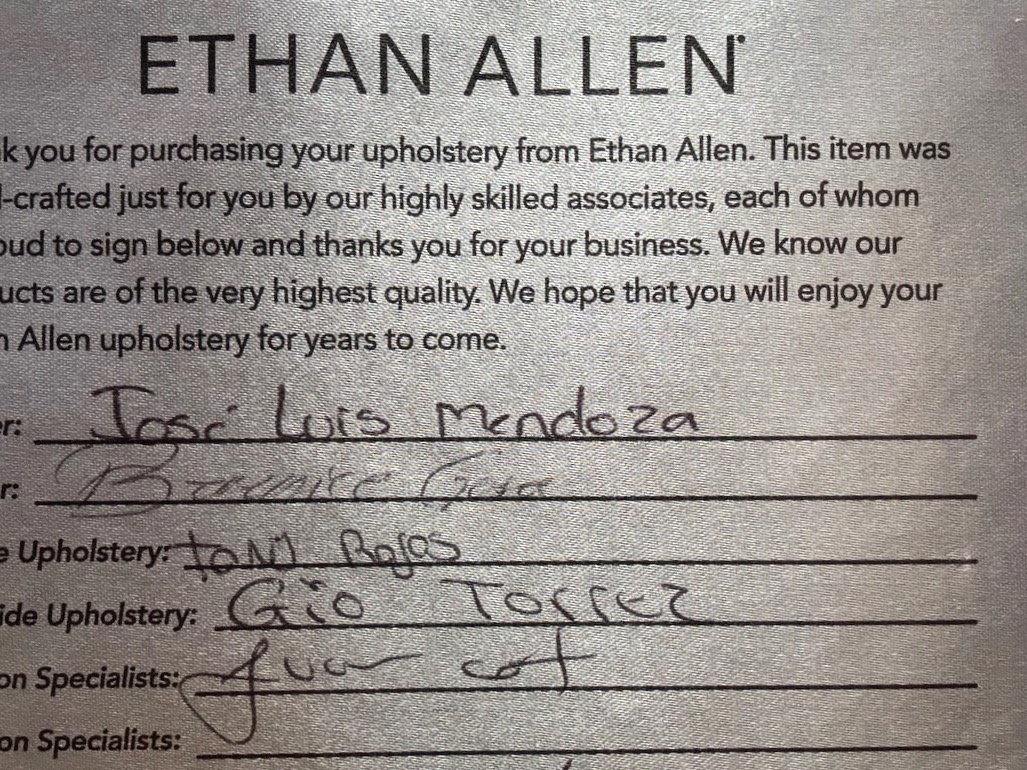 ETHAN ALLEN
k you for purchasing your upholstery from Ethan Allen. This item was
-crafted just for you by our highly skilled associates, each of whom
oud to sign below and thanks you for your business. We know our
ucts are of the very highest quality. We hope that you will enjoy your
n Allen upholstery for years to come.
er: José Luis Mendoza
r:
e Upholstery: toni Rojas
ide Upholstery: Gio Torrez
on Specialists: Juan cot
on Specialists: